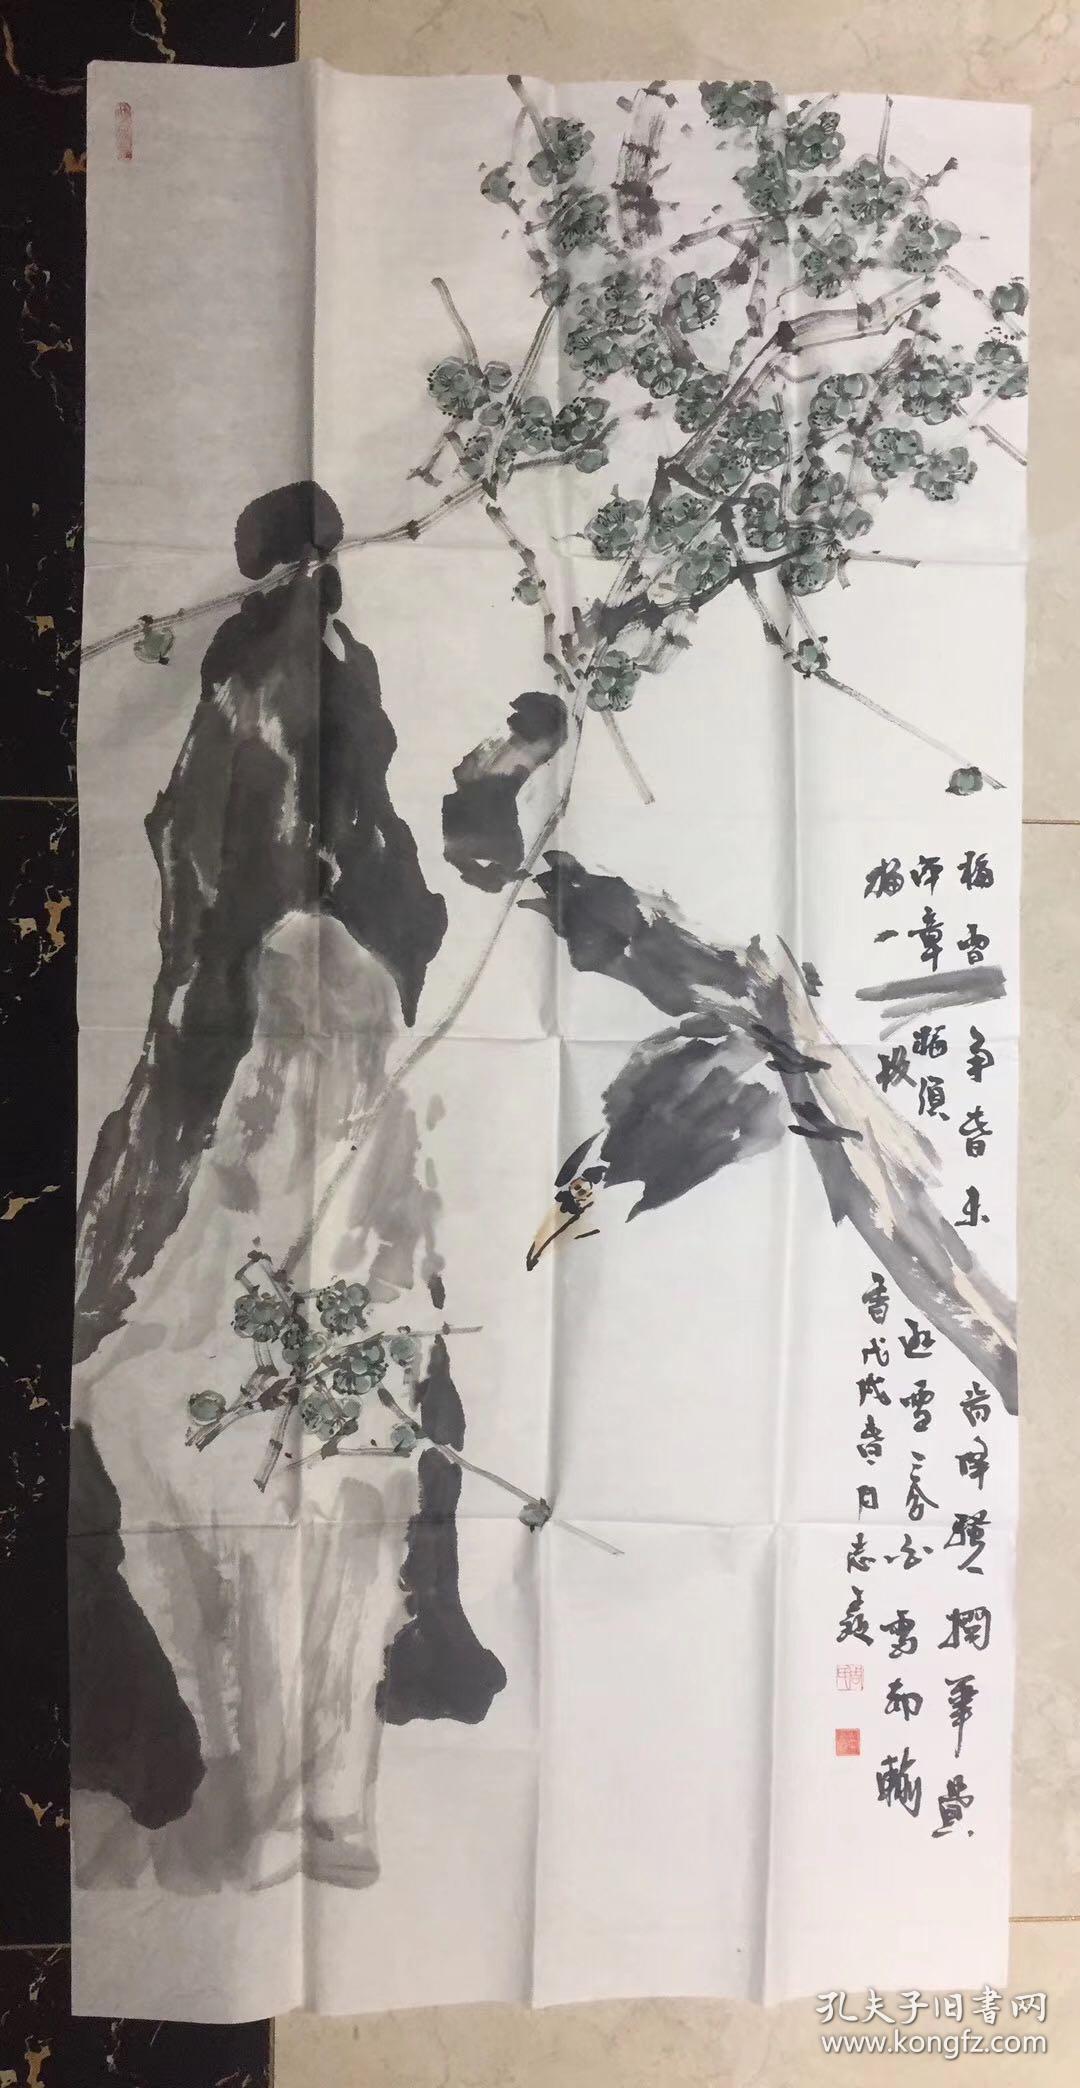 梅雪争春未肯降骚人搁笔费
评章梅须逊雪三分白雪却输
梅一段香戊戌春月志
孔夫子旧书网
www.kongfz.com